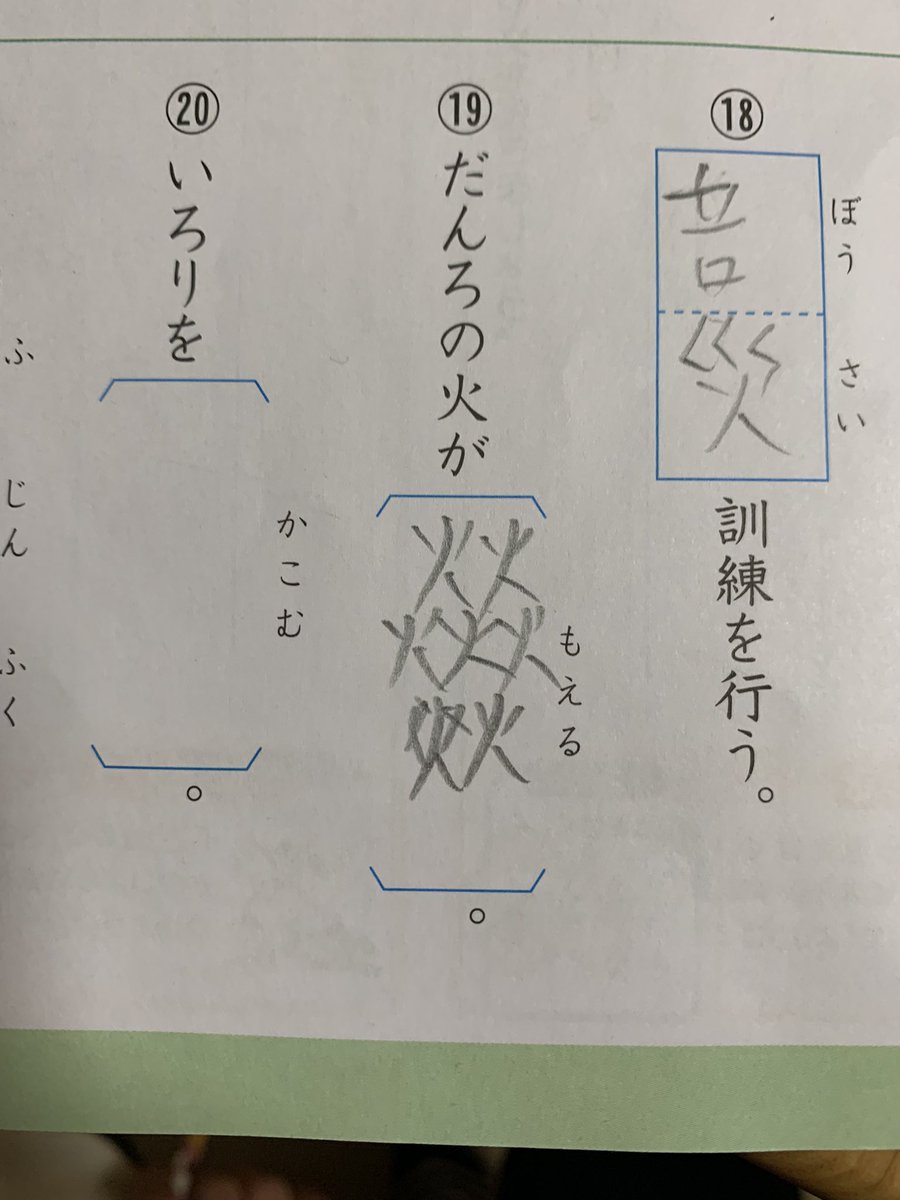 ぼうさい
⑱災訓練を行う。
もえる
⑲だんろの火が。
かこむ
⑳いろりを。
ふじんふく